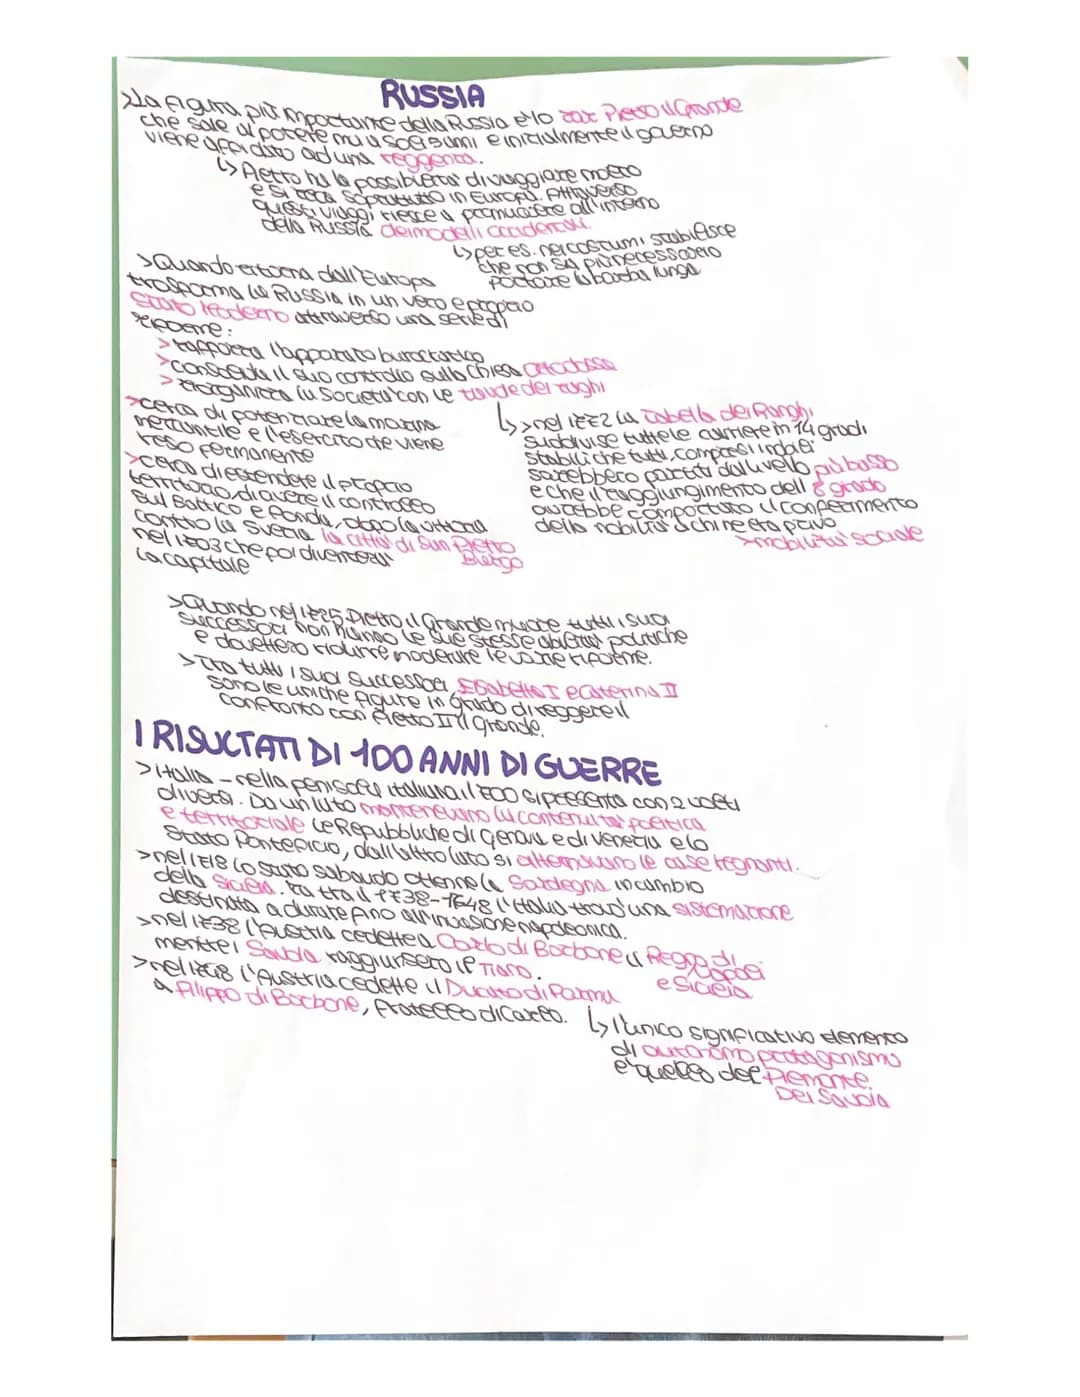 RUSSIA
>La figura più importante della Russia è lo zar Pietro il Grande
che sale al potere ma a soli anni e inizialmente il governo
viene affidato ad una reggenta.
↳ Pietro ha la possibilità di viaggiare molto
e si reca soprattutto in Europa. Attraverso
questi viaggi riesce a promuovere all'interno
della Russia dei modelli occidentali.
↳ per es. nei costumi stabilisce
che non sia più necessario
portare la barba lunga
>Quando ritorna dall'Europa
trasforma la Russia in un vero e proprio
Stato Moderno attraverso una serie di
riforme:
> rafforza l'apparato burocratico
>consolida il suo controllo sulla Chiesa Ortodossa
> riorganizza la società con le tavole dei ranghi
↳>nel 1722 la Tabella dei Ranghi
suddivise tutte le carriere in 14 gradi
stabilì che tutti, compresi i nobili
sarebbero partiti dal livello più basso
e che il raggiungimento dell' 8 grado
avrebbe comportato il conferimento
della nobiltà a chi ne era privo
>mobilità sociale
>cerca di potenziare la marina
mercantile e l'esercito che viene
reso permanente
>cerca di estendere il proprio
territorio, di avere il controllo
sul Baltico e fonda, dopo la vittoria
contro la Svezia, la città di San Pietro
Burgo
nel 1703 che poi diventerà
la capitale
>Quando nel 1725 Pietro il Grande muore tutti i suoi
successori non hanno le sue stesse abilità politiche
e dovettero ridurre, moderare le varie riforme.
>Tra tutti i suoi successori Elisabetta I e Caterina II
sono le uniche figure in grado di reggere il
confronto con Pietro II il Grande.
I RISULTATI DI 100 ANNI DI GUERRE
>Italia – nella penisola italiana il 700 si presenta con 2 volti
diversi. Da un lato mantenevano la continuità politica
e territoriale le Repubbliche di Genova e di Venezia e lo
Stato Pontificio, dall'altro lato si alternavano le case regnanti.
>nel 1718 lo Stato sabaudo ottenne la Sardegna in cambio
della Sicilia. Ma tra il 1738-1648 l'Italia trovò una sistemazione
destinata a durare fino all'invasione napoleonica.
>nel 1738 l'Austria cedette a Carlo di Borbone il Regno di
Napoli
e Sicilia
mentre i Savoia raggiunsero il Ticino.
>nel 1748 l'Austria cedette il Ducato di Parma
a Filippo di Borbone, fratello di Carlo.
↳ l'unico significativo elemento
di autonomo protagonismo
è quello del Piemonte
Dei Savoia